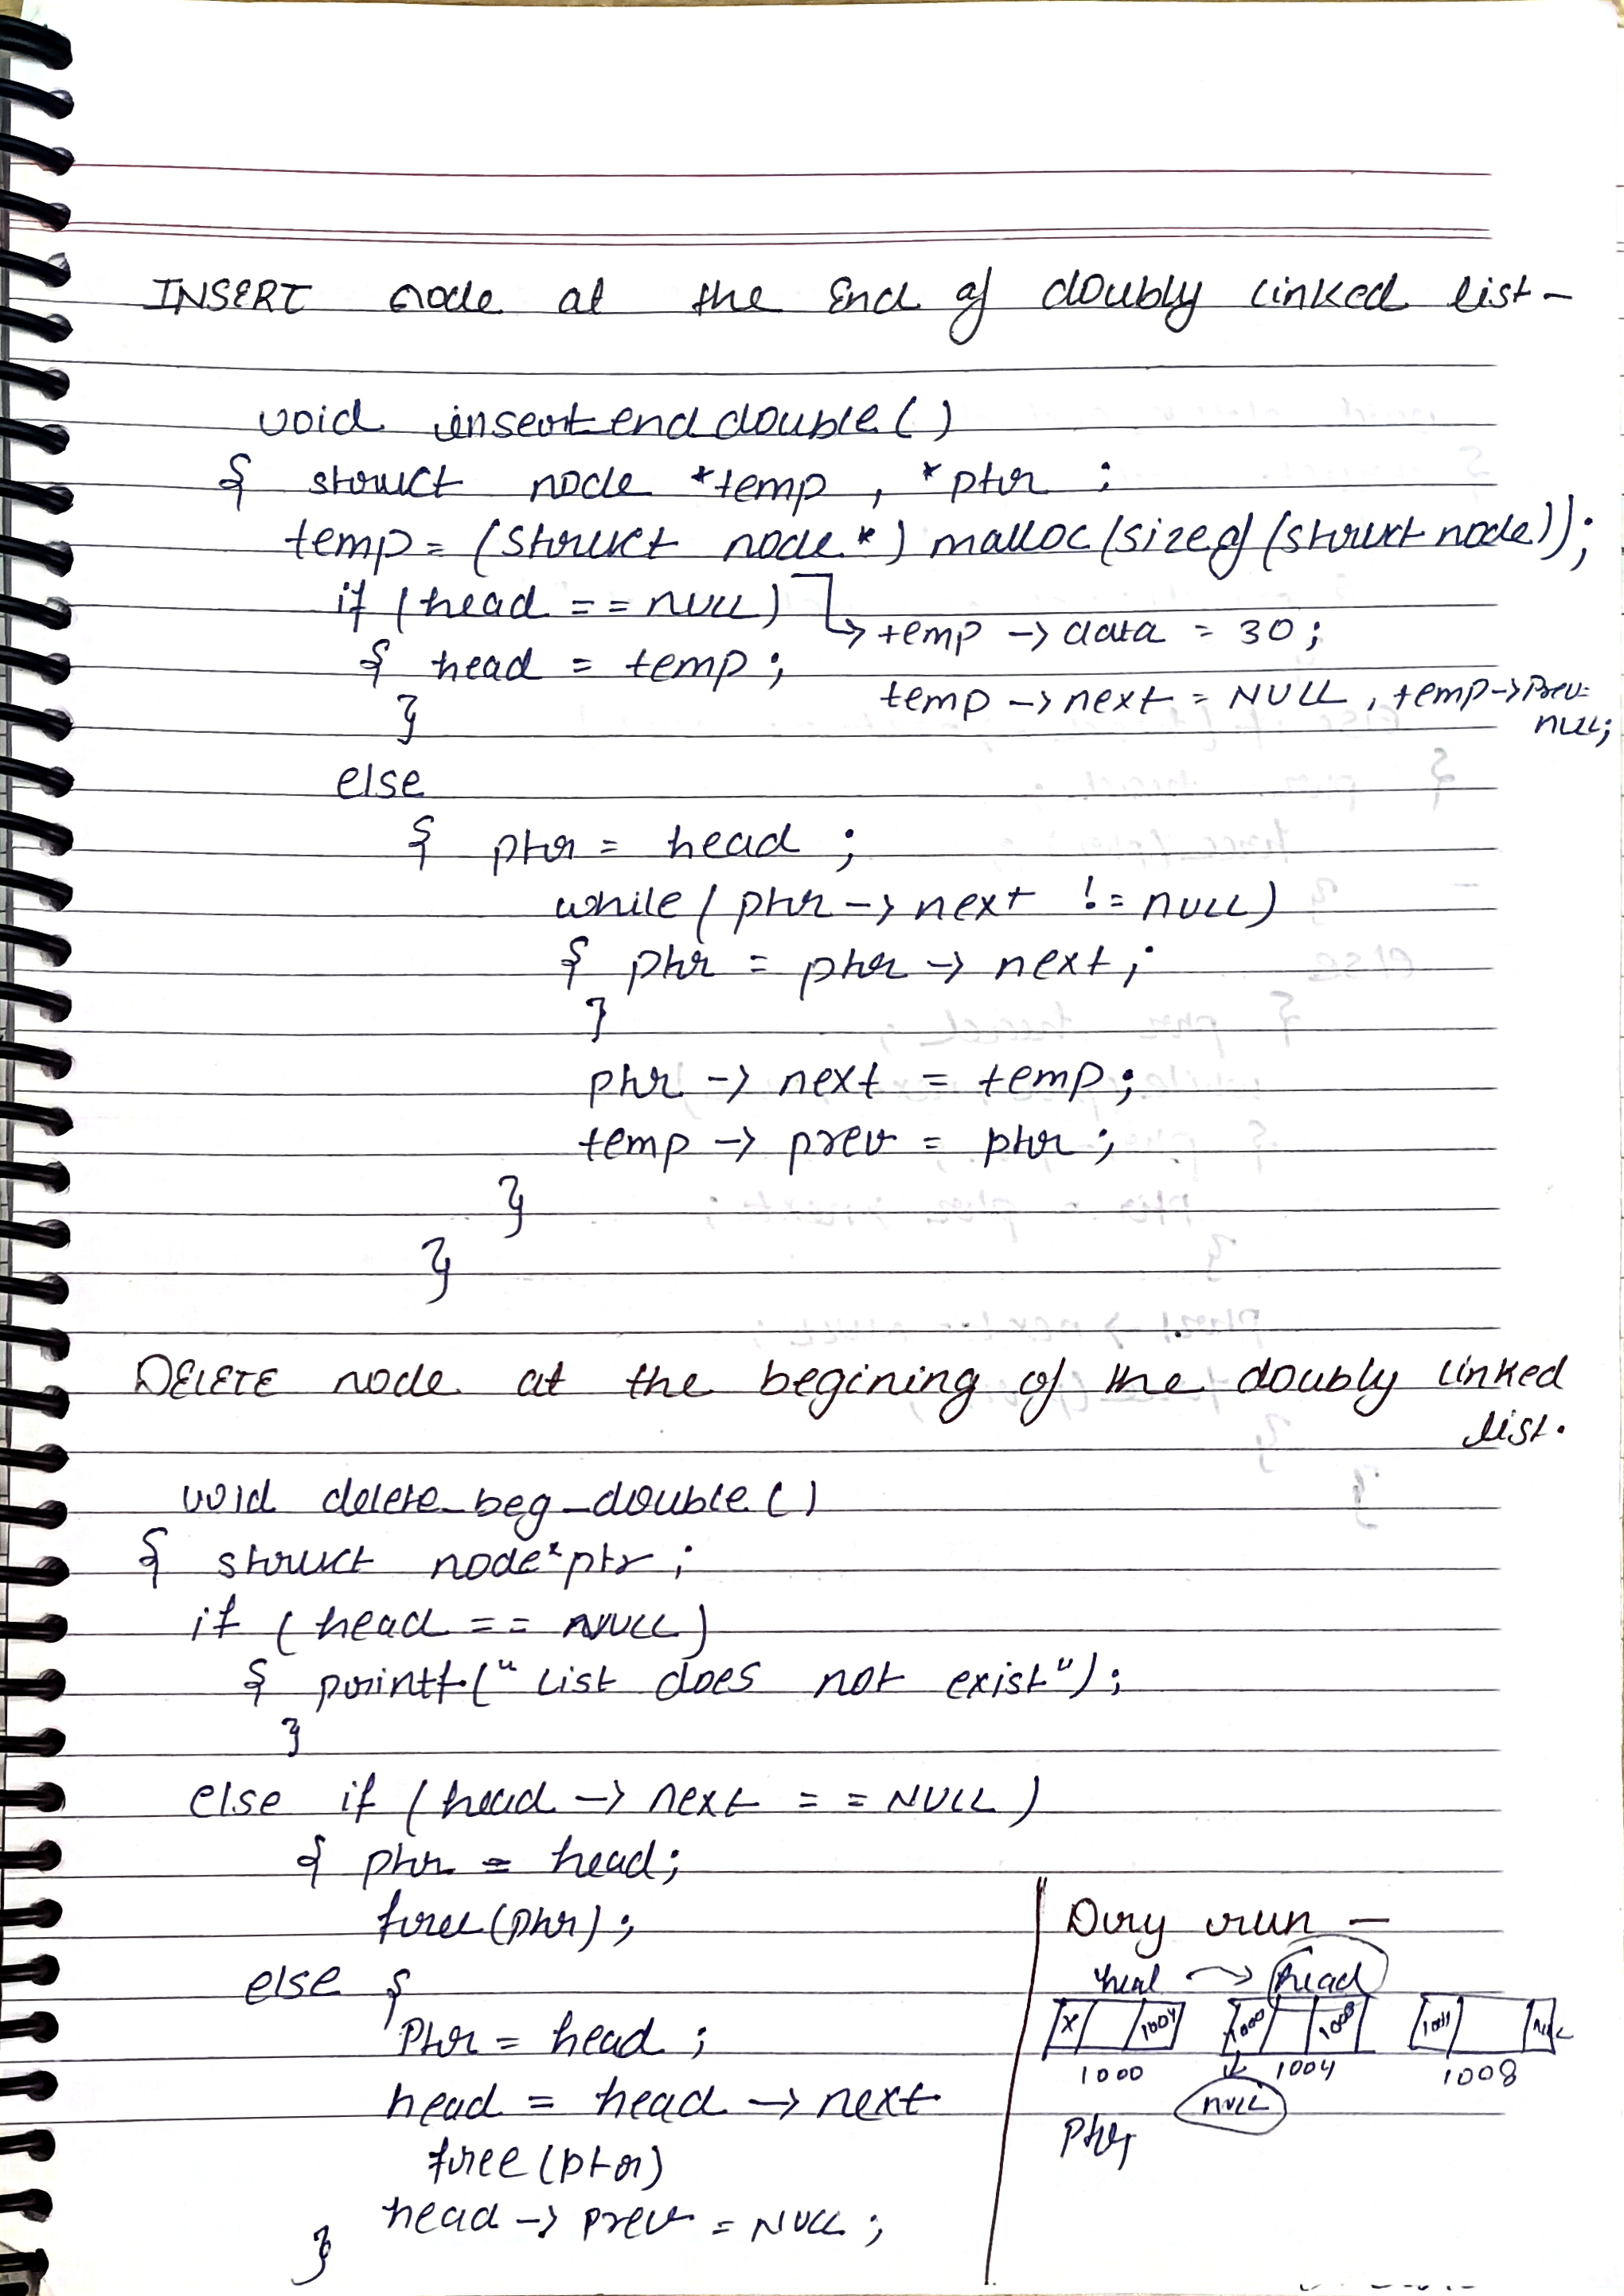 INSERT node at the End of doubly linked list -
void insert end double ( )
{ struct node *temp , *ptr ;
temp = (struct node *) malloc (sizeof (struct node));
if (head == NULL)
→ temp → data = 30 ;
{ head = temp ;
temp → next = NULL , temp → Prev =
NULL ;
}
else
{ ptr = head ;
while ( ptr → next != NULL)
{ ptr = ptr → next ;
}
ptr → next = temp ;
temp → prev = ptr ;
}
}
DELETE node at the begining of the doubly linked
list.
void delete_beg_double ( )
{ struct node *ptr ;
if ( head == NULL)
{ printf (" List does not exist ") ;
}
else if ( head → next == NULL )
{ ptr = head ;
free (ptr) ;
else {
Ptr = head ;
head = head → next
free (ptr)
head → prev = NULL ;
}
Dry run —
head → head
X 1004 1000 1008 1004 NULL
1000 1004 1008
NULL
Ptr